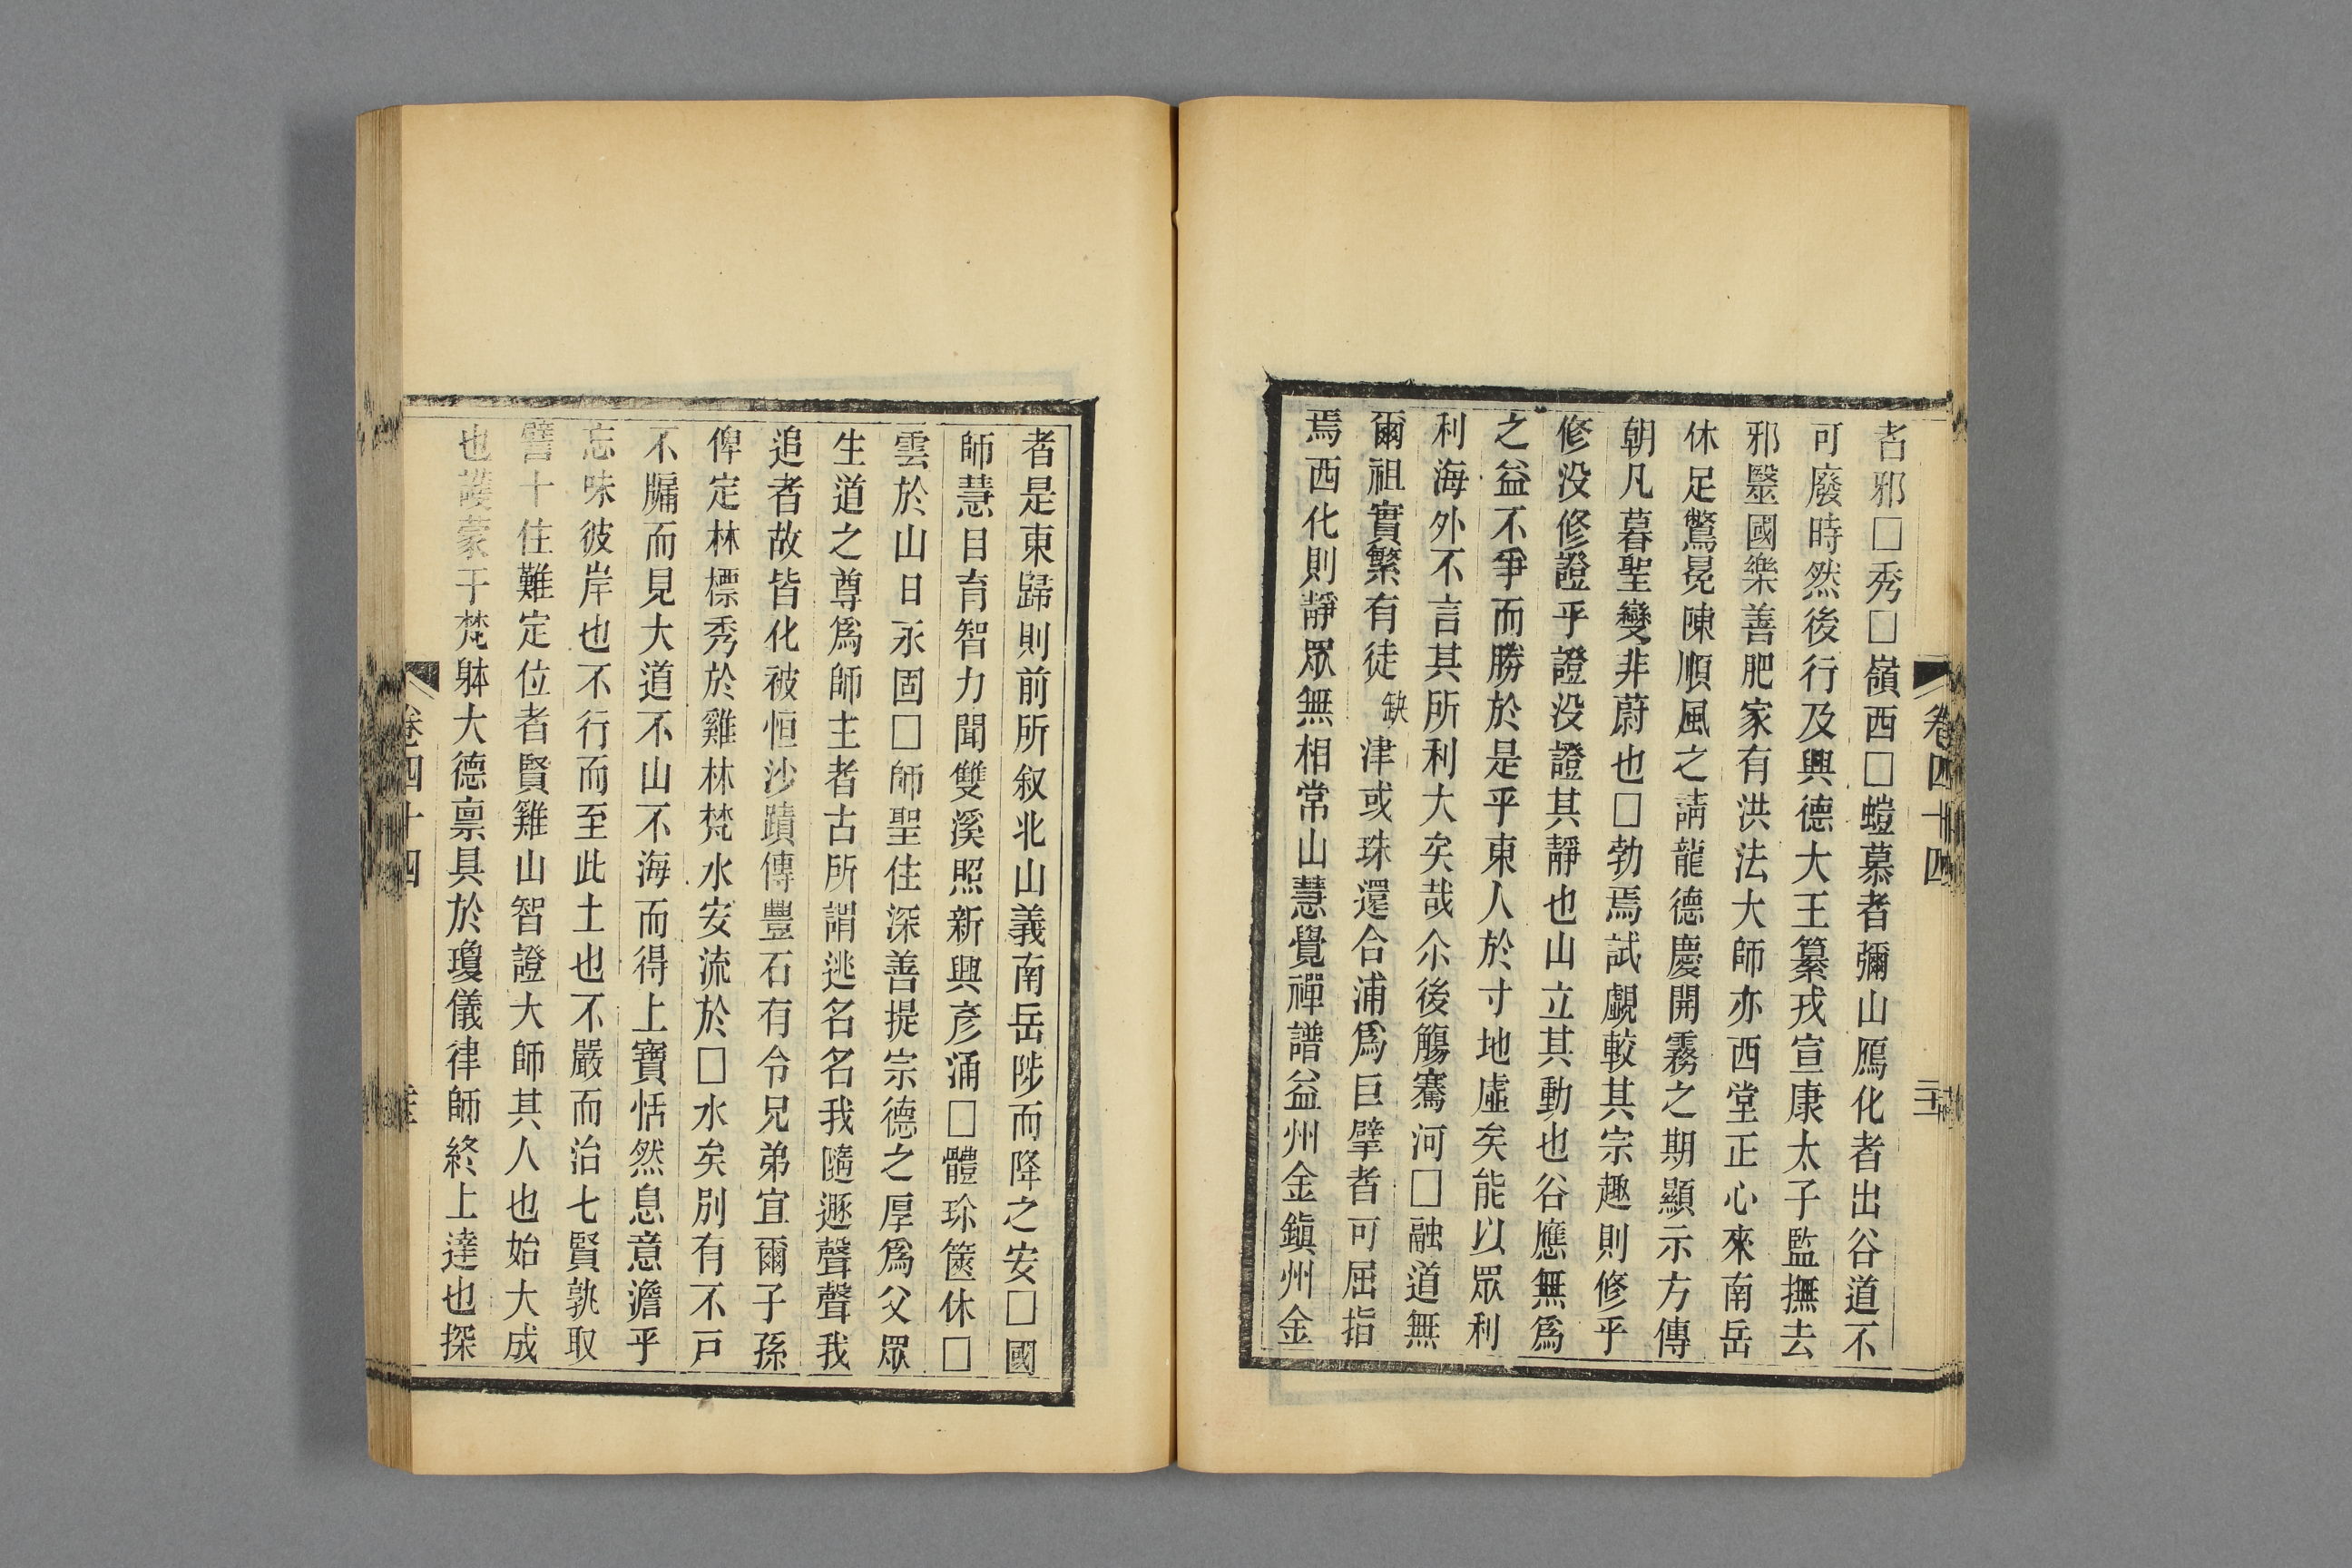 者邪□秀□嶺西□螘慕者彌山鴈化者出谷道不
可廢時然後行及興德大王纂戎宣康太子監撫去
邪毉國樂善肥家有洪法大師亦西堂正心來南岳
休足驚冕陳順風之請龍德慶開霧之期顯示方傳
朝凡暮聖變非蔚也□勃焉試覰較其宗趣則修乎
修没修證乎證没證其靜也山立其動也谷應無爲
之益不爭而勝於是乎東人於寸地虛矣能以眾利
利海外不言其所利大矣哉尒後觴騫河□融道無
爾祖實繁有徒缺津或珠還合浦爲巨擘者可屈指
焉西化則靜眾無相常山慧覺禪譜益州金鎭州金
卷四十四
者是東歸則前所叙北山義南岳陟而降之安□國
師慧目育智力聞雙溪照新興彦涌□體珎篋休□
雲於山日永固□師聖住深善提宗德之厚爲父眾
生道之尊爲師主者古所謂逃名名我隨遯聲聲我
追者故皆化被恒沙蹟傳豐石有令兄弟宜爾子孫
俾定林標秀於雞林梵水安流於□水矣別有不戸
不牖而見大道不山不海而得上寶恬然息意澹乎
忘味彼岸也不行而至此土也不嚴而治七賢孰取
譬十住難定位者賢雞山智證大師其人也始大成
也護蒙于梵躰大德禀具於瓊儀律師終上達也探
卷四十四